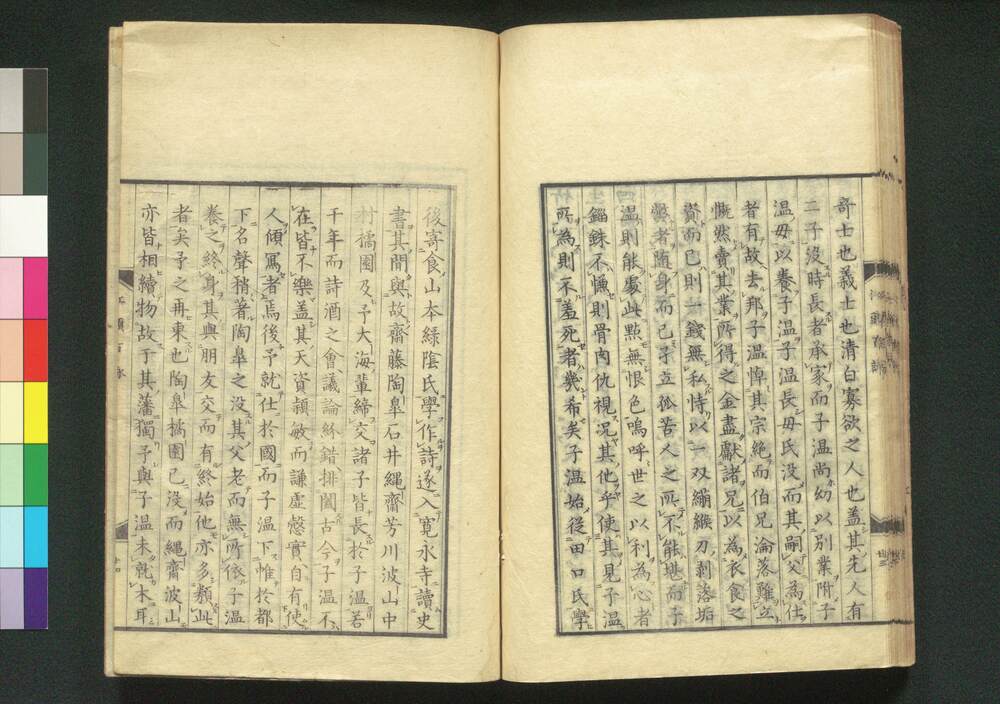 奇士也義士也清白寡欲之人也蓋其先人有
二子沒時長者承家而子温尚幼以別業附子
温母以養子温子温長母氏沒而其嗣父為仕
者有故去邦子温悼其宗絶而伯兄淪落難立
慨然賣其業所得之金盡獻諸兄以為衣食之
資而已則一錢無私恃以一双繃緱刀剃落垢
弊者随身而已孑立孤苦人之所不能堪而子
温則能處此點無恨色嗚呼世之以利為心者
錙銖不慊則骨肉仇視况其他乎使其見子温
所為則不羞死者幾希矣子温始從田口氏學
後寄食山本緑陰氏學作詩遂入寛永寺讀史
書其間與故齋藤陶皐石井繩齋芳川波山中
村橘園及予大海輩締交諸子皆長於子温若
干年而詩酒之會議論絲錯排闔古今子温不
在皆不樂蓋其天資頴敏而謙虚愨實自有使
人傾寫者焉後予就仕於國而子温下帷於都
下名聲稍著陶皐之没其父老而無所依子温
養之終身其與朋友交而有終始他亦多類此
者矣予之再東也陶皐橘園已没而繩齋波山
亦皆相續物故于其藩獨予與子温未就木耳